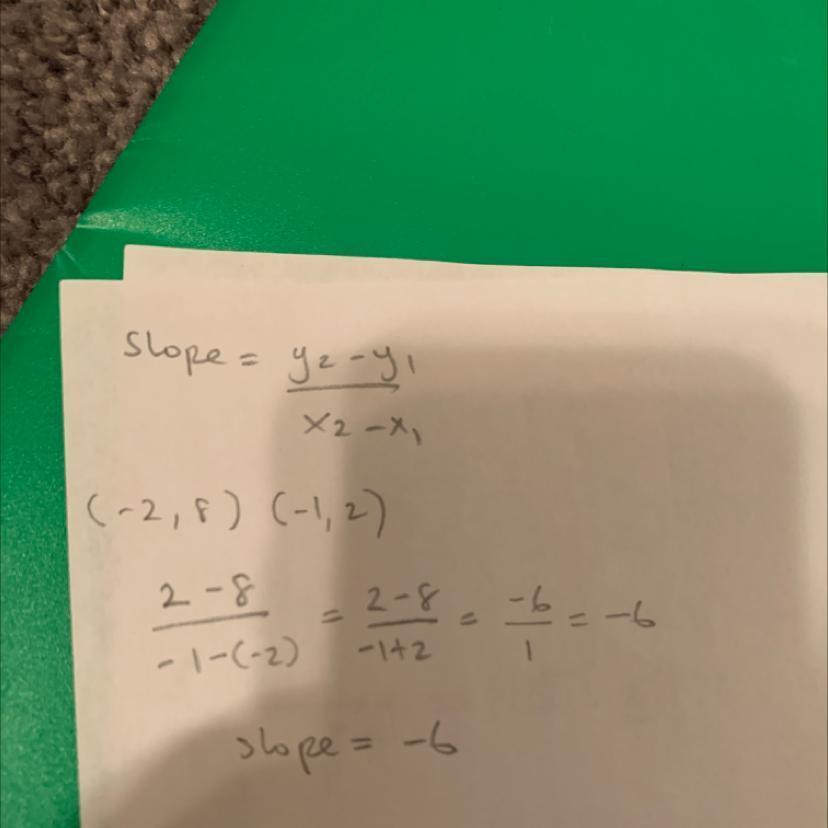 slope = y2 - y1 / x2 - x1
(-2, 8) (-1, 2)
2 - 8 / -1 - (-2) = 2 - 8 / -1 + 2 = -6 / 1 = -6
slope = -6